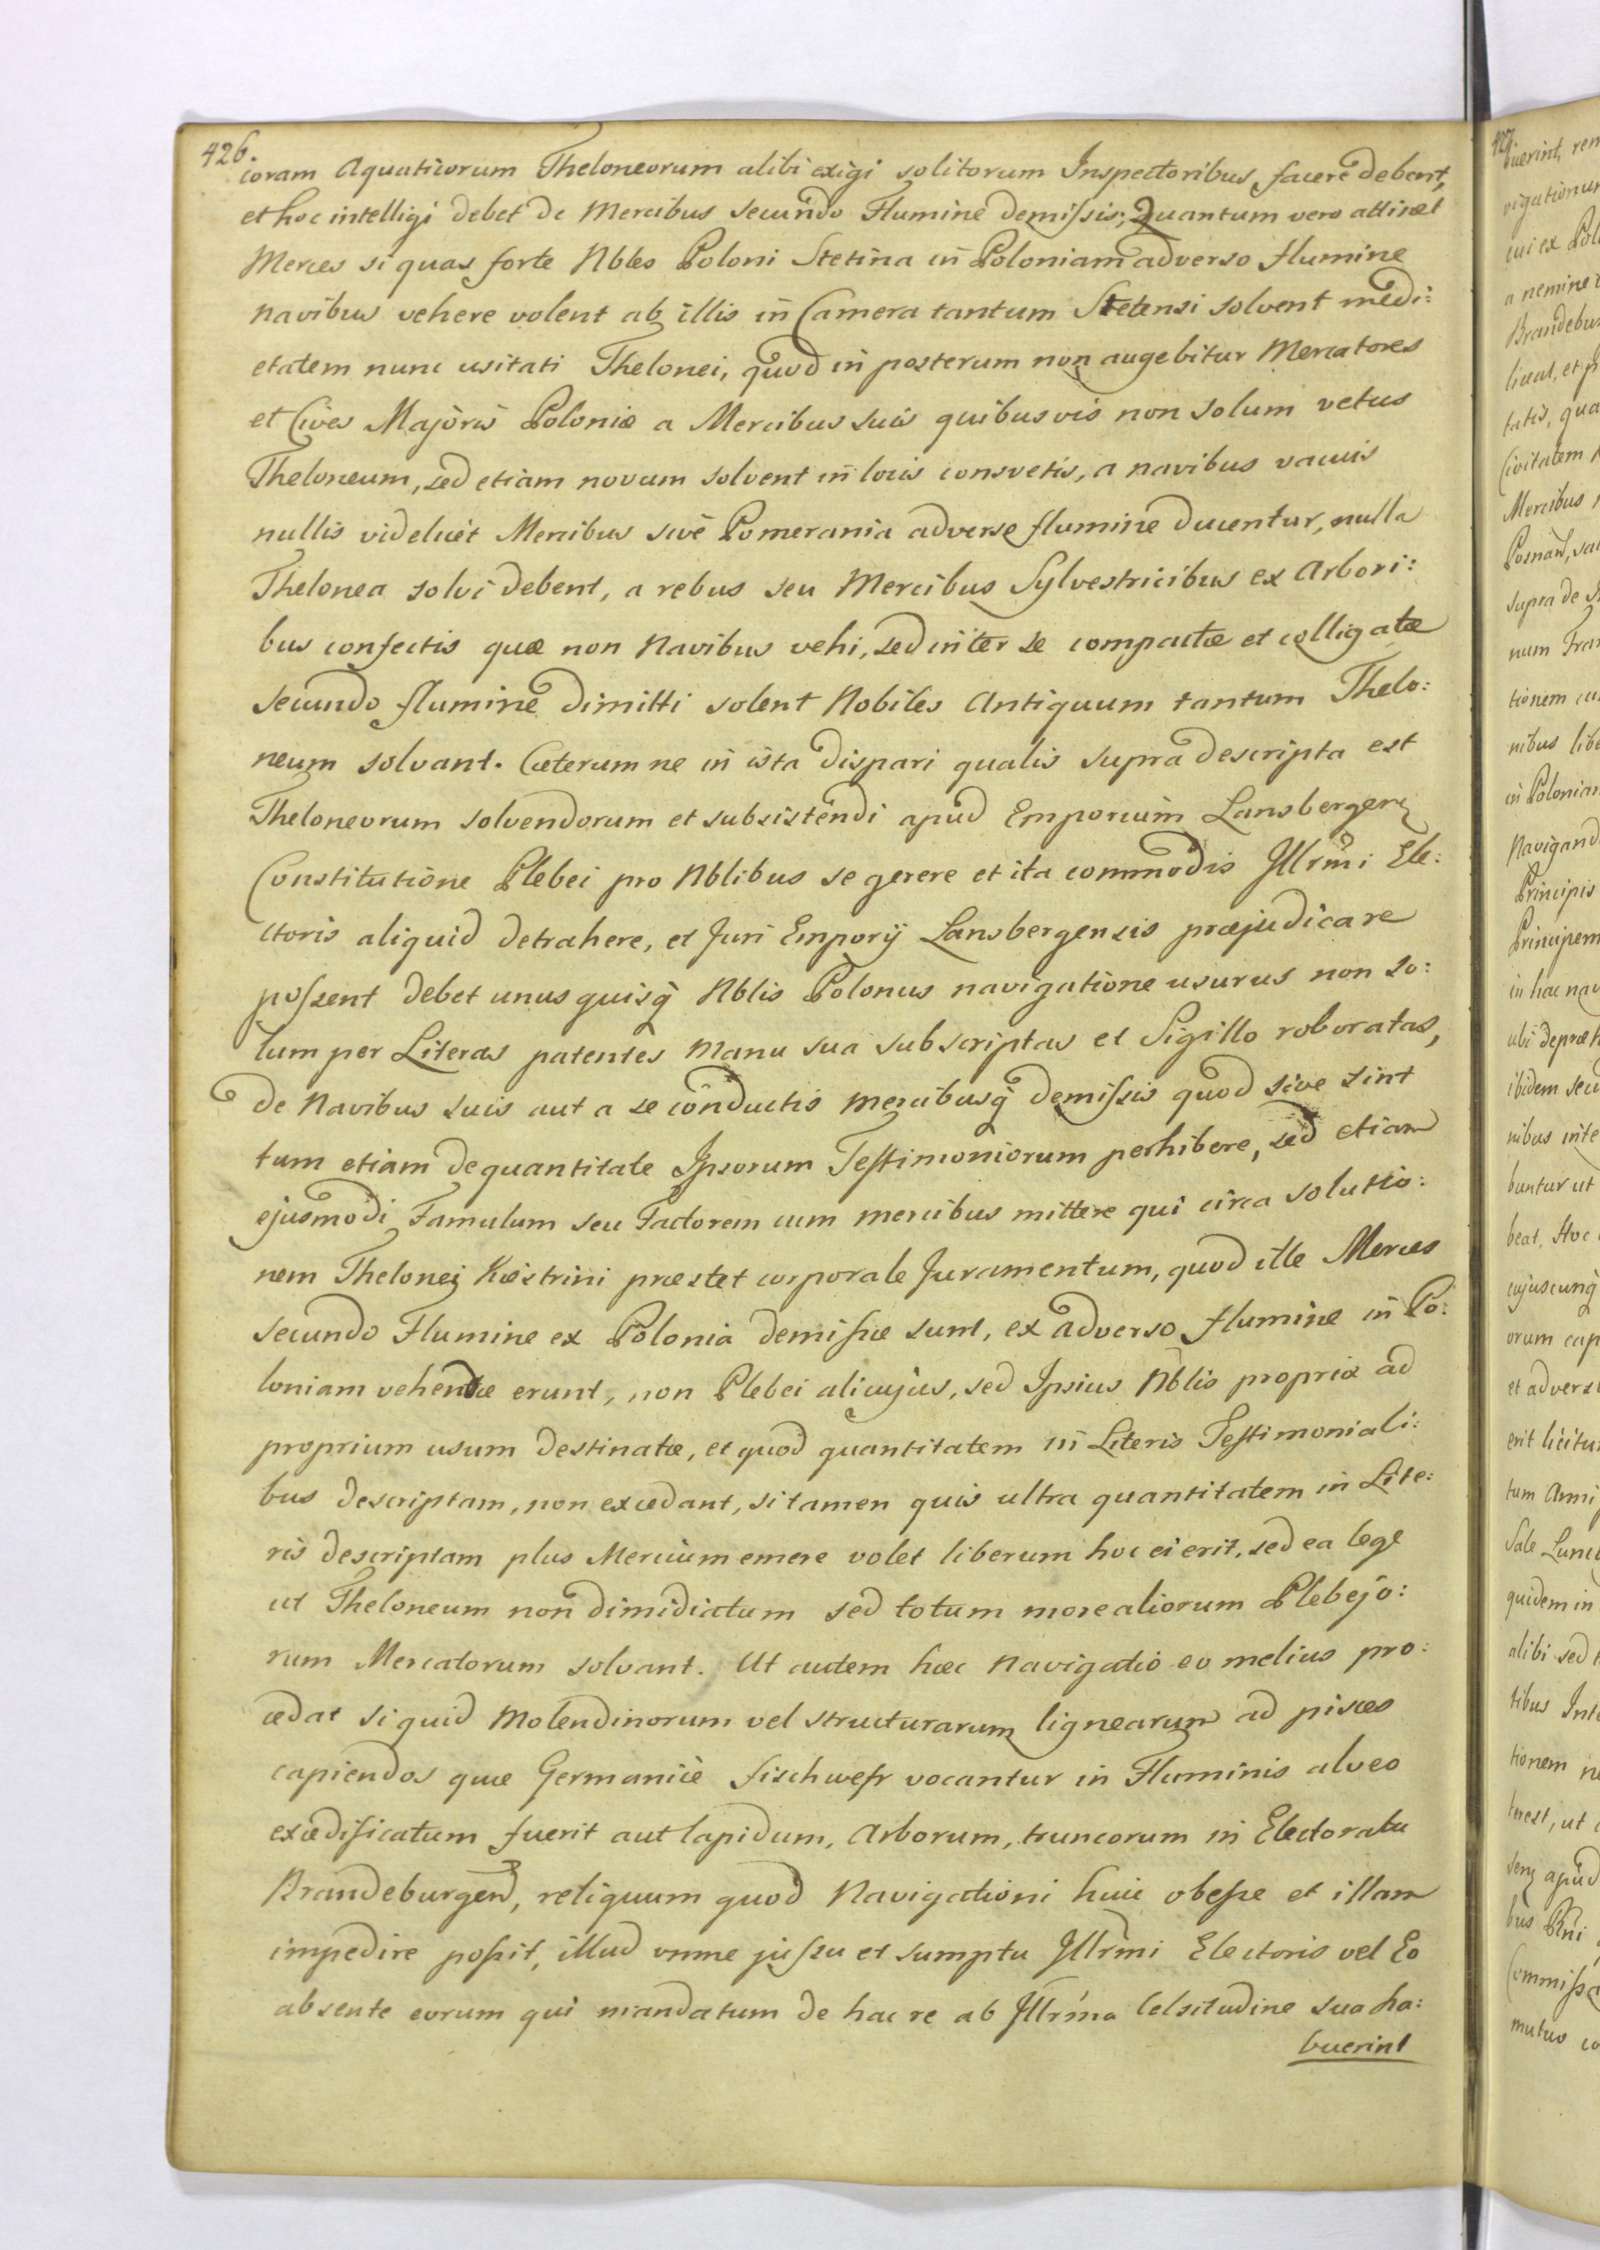 426.
coram Aquaticorum Theloneorum alibi exigi solitorum Inspectoribus facere debent,
et hoc intelligi debet de Mercibus secundo Flumine demissis; Quantum vero attinet
Merces si quas forte Nbles Poloni Stetina in Poloniam adverso flumine
navibus vehere volent ab illis in Camera tantum Stetensi solvent medi:
etatem nunc usitati Thelonei, quod in posterum non augebitur Mercatores
et Cives Majoris Poloniæ a Mercibus suis quibusvis non solum vetus
Theloneum, sed etiam novum solvent in locis consvetis, a navibus vacuis
nullis videlicet Mercibus sive Pomerania adverse flumine ducentur, nulla
Thelonea solvi debent, a rebus seu Mercibus Sylvestricibus ex Arbori:
bus confectis quæ non Navibus vehi, sed inter se compactæ et colligatæ
secundo flumine dimitti solent Nobiles Antiquum tantum Thelo:
neum solvant. Cæterum ne in ista dispari qualis supra descripta est
Theloneorum solvendorum et subsistendi apud Emporium Lansbergen
Constitutione Plebei pro Nblibus se gerere et ita commodis Illrmi Ele:
ctoris aliquid detrahere, et Juri Emporij Lansbergensis præjudicare
possent debet unusquisq Nblis Polonus navigatione usurus non so:
lum per Literas patentes manu sua subscriptas et Sigillo roboratas,
de Navibus suis aut a se conductis mercibusq demissis quod sive sint
tum etiam de quantitate Ipsorum Testimoniorum perhibere, sed etiam
ejusmodi Famulum seu Factorem cum mercibus mittere qui circa solutio:
nem Thelonej Kæstrini præstet corporale Juramentum, quod ille Merces
secundo Flumine ex Polonia demissæ sunt, ex adverso flumine in Po:
loniam vehendæ erunt, non Plebei alicujus, sed Ipsius Nblis propriæ ad
proprium usum destinatæ, et quod quantitatem in Literis Testimoniali:
bus descriptam, non excedant, si tamen quis ultra quantitatem in Lite:
ris descriptam plus Mercium emere volet liberum hoc ei erit, sed ea lege
ut Theloneum non dimidiatum sed totum more aliorum Plebejo:
rum Mercatorum solvant. Ut autem hæc Navigatio eo melius pro:
cedat si quid Molendinorum vel structurarum lignearum ad pisces
capiendos quæ Germanice fischwehr vocantur in Fluminis alveo
exædificatum fuerit aut lapidum, Arborum, truncorum in Electoratu
Brandeburgen, reliquum quod Navigationi huic obesse et illam
impedire possit, illud omne jussu et sumptu Illrmi Electoris vel Eo
absente eorum qui mandatum de hac re ab Illrma Celsitudine sua ha:
buerint